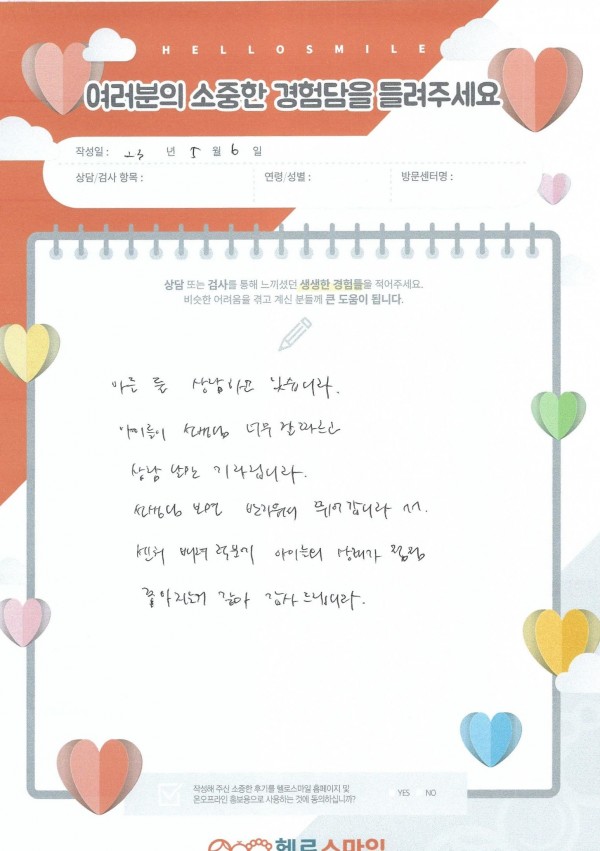 HELLOSMILE
여러분의 소중한 경험담을 들려주세요
작성일 : 23 년 5 월 6 일
상담/검사 항목 : 연령/성별 : 방문센터명 :
상담 또는 검사를 통해 느끼셨던 생생한 경험들을 적어주세요.
비슷한 어려움을 겪고 계신 분들께 큰 도움이 됩니다.
상담하고 있습니다.
아이들이 선생님 너무 잘 따르고
상담 날만 기다립니다.
선생님 보면 반가워서 뛰어갑니다
아이들의 상태가 점점
좋아지는거 같아 감사드립니다.
작성해 주신 소중한 후기를 헬로스마일 홈페이지 및
온오프라인 홍보용으로 사용하는 것에 동의하십니까?
YES NO
헬로스마일